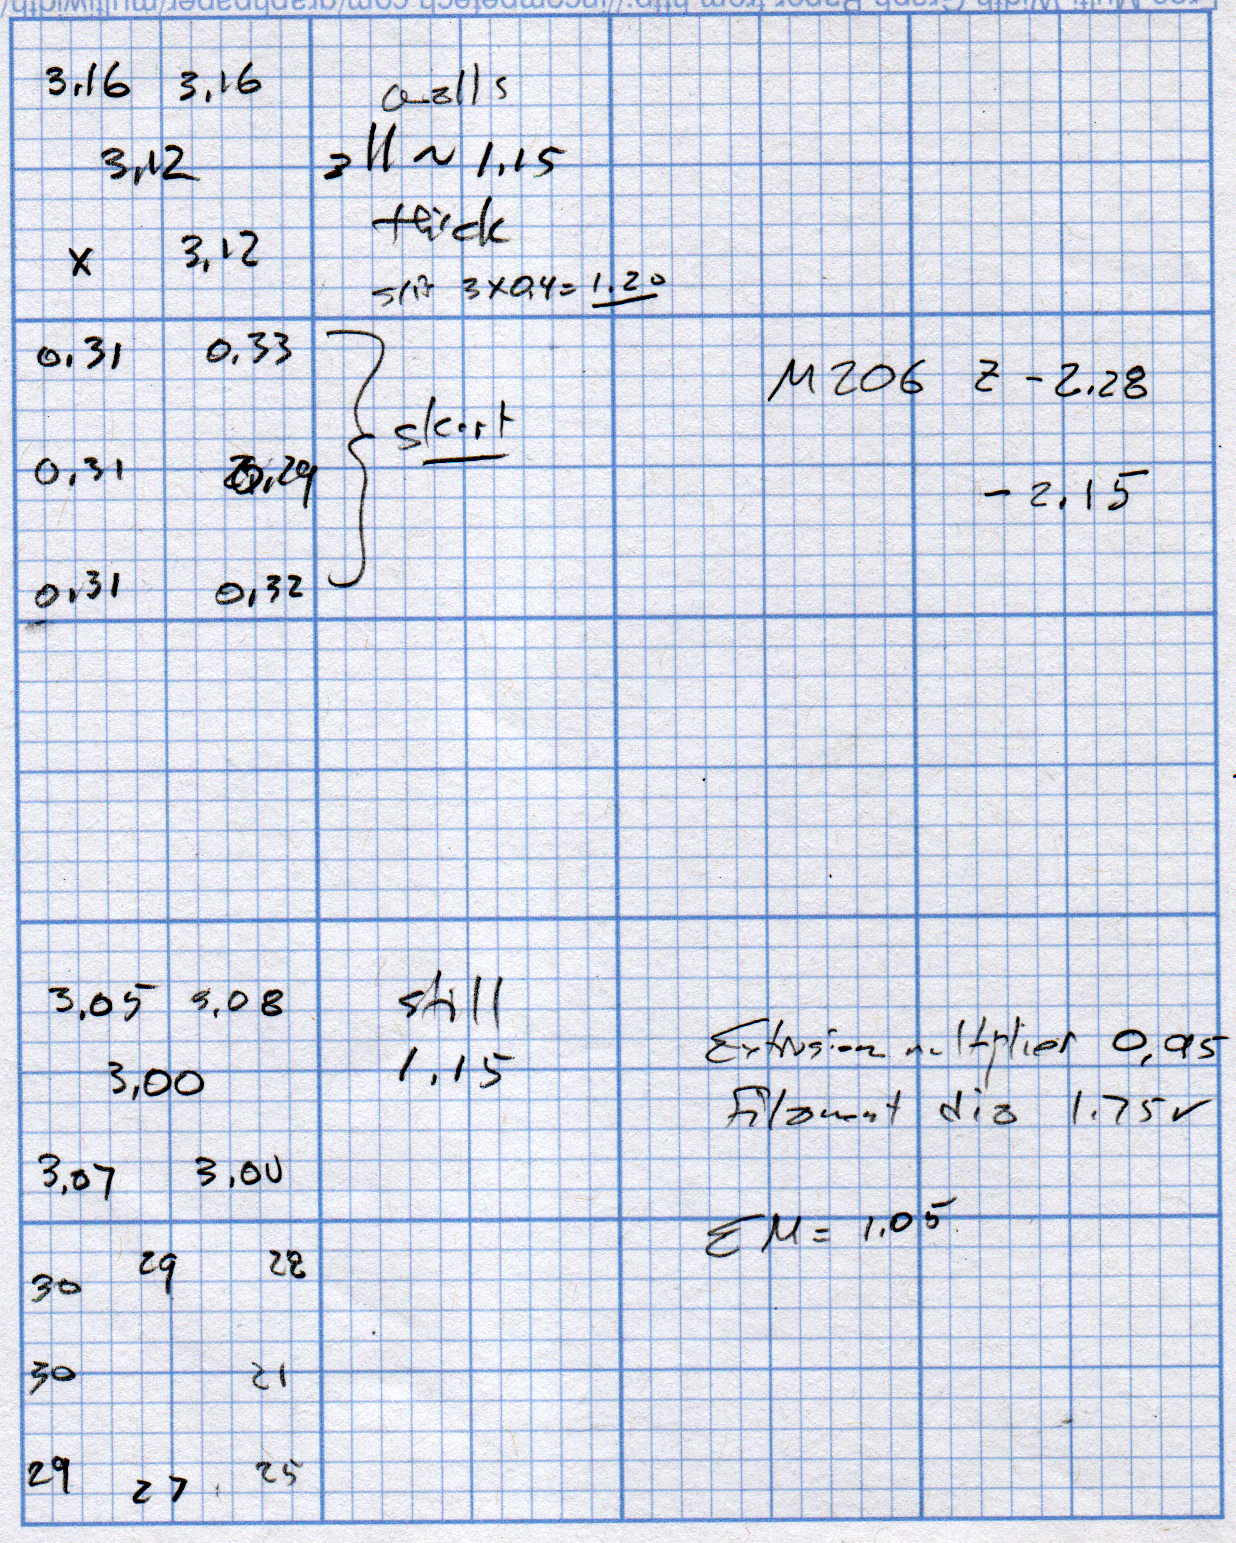 Free Multi-Width Graph Paper from http://incompetech.com/graphpaper/multiwidth/
3.16 3.16
3.12
x 3.12
walls
all ~ 1.15
thick
s/b 3x0.4= 1.20
0.31 0.33
0.31 0.29
0.31 0.32
skirt
M206 Z -2.28
-2.15
3.05 3.08
3.00
3.07 3.00
still
1.15
Extrusion multiplier 0.95
Filament dia 1.75✓
EM = 1.05
30 29 28
30 21
29 27 25